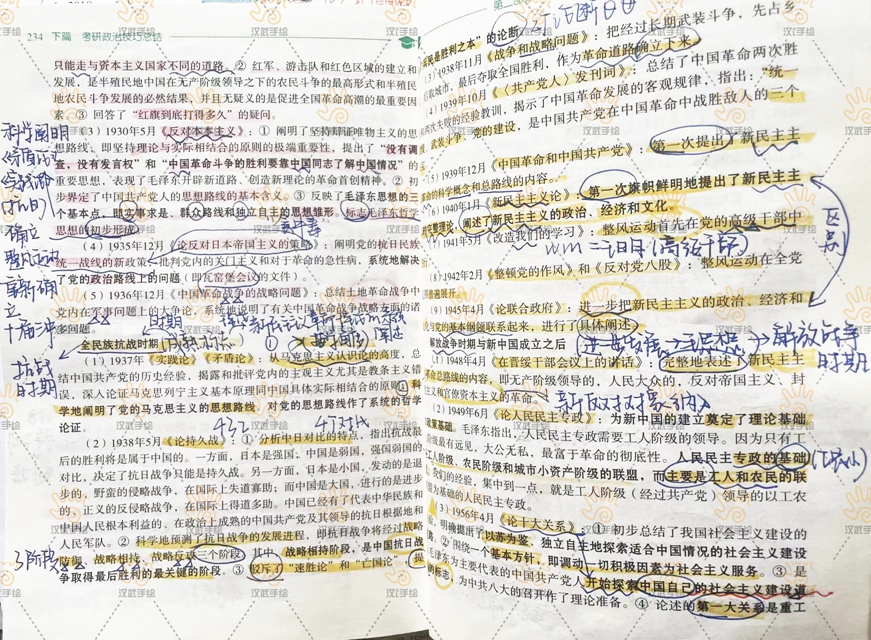 234 下篇 考研政治技巧总结
只能走与资本主义国家不同的道路。② 红军、游击队和红色区域的建立和
发展，是半殖民地中国在无产阶级领导之下的农民斗争的最高形式和半殖民
地农民斗争发展的必然结果，并且无疑义的是促进全国革命高潮的最重要因
素。③ 回答了“红旗到底打得多久”的疑问。
（3）1930年5月《反对本本主义》：① 阐明了坚持辩证唯物主义的思
想路线，即坚持理论与实际相结合的原则的极端重要性，提出了“没有调
查，没有发言权”和“中国革命斗争的胜利要靠中国同志了解中国情况”的
重要思想，表现了毛泽东开辟新道路、创造新理论的革命首创精神。② 初
步界定了中国共产党人的思想路线的基本含义。③ 反映了毛泽东思想的三
个基本点，即实事求是、群众路线和独立自主的思想雏形，标志毛泽东哲学
思想的初步形成
（4）1935年12月《论反对日本帝国主义的策略》：阐明党的抗日民族
统一战线的新政策，批判党内的关门主义和对于革命的急性病，系统地解决
了党的政治路线上的问题（即瓦窑堡会议的文件）。
（5）1936年12月《中国革命战争的战略问题》：总结土地革命战争中
党内在军事问题上的大争论，系统地说明了有关中国革命战争战略方面的诸
多问题。
全民族抗战时期
（1）1937年《实践论》《矛盾论》：从马克思主义认识论的高度，总
结中国共产党的历史经验，揭露和批评党内的主观主义尤其是教条主义错
误，深入论证马克思列宁主义基本原理同中国具体实际相结合的原则，科
学地阐明了党的马克思主义的思想路线，对党的思想路线作了系统的哲学
论证。
（2）1938年5月《论持久战》：① 分析中日对比的特点，指出抗战最
后的胜利将是属于中国的。一方面，日本是强国，中国是弱国，强国弱国的
对比，决定了抗日战争只能是持久战。另一方面，日本是小国，发动的是退
步的、野蛮的侵略战争，在国际上失道寡助；而中国是大国，进行的是进步
的、正义的反侵略战争，在国际上得道多助。中国已经有了代表中华民族和
中国人民根本利益的、在政治上成熟的中国共产党及其领导的抗日根据地和
人民军队。② 科学地预测了抗日战争的发展进程，即抗日战争将经过战略
防御、战略相持、战略反攻三个阶段。其中，战略相持阶段，是中国抗日战
争取得最后胜利的最关键的阶段。③ 驳斥了“速胜论”和“亡国论”，提
抗战
时期
3阶段
民是胜利之本”的论断
（3）1938年11月《战争和战略问题》：把经过长期武装斗争，先占乡
后取城市，最后夺取全国胜利，作为革命道路确立下来。
（4）1939年10月《〈共产党人〉发刊词》：总结了中国革命两次胜
两次失败的经验教训，揭示了中国革命发展的客观规律，指出：“统一
武装斗争、党的建设，是中国共产党在中国革命中战胜敌人的三个
（5）1939年12月《中国革命和中国共产党》：第一次提出新民主主
革命的科学概念和总路线的内容。
（6）1940年1月《新民主主义论》：第一次旗帜鲜明地提出了新民主主
完整理论，阐述了新民主主义的政治、经济和文化
1941年5月《改造我们的学习》：整风运动首先在党的高级干部中
（8）1942年2月《整顿党的作风》和《反对党八股》：整风运动在全党
普遍展开。
（9）1945年4月《论联合政府》：进一步把新民主主义的政治、经济和
与党的基本纲领联系起来，进行了具体阐述。
解放战争时期与新中国成立之后
（1）1948年4月《在晋绥干部会议上的讲话》：完整地表述了新民主主
革命总路线的内容，即无产阶级领导的，人民大众的，反对帝国主义、封
主义和官僚资本主义的革命。
（2）1949年6月《论人民民主专政》：为新中国的建立奠定了理论基础
政策基础。毛泽东指出，人民民主专政需要工人阶级的领导。因为只有工
阶级最有远见，大公无私，最富于革命的彻底性。人民民主专政的基础
工人阶级、农民阶级和城市小资产阶级的联盟，而主要是工人和农民的联
我们的经验，集中到一点，就是工人阶级（经过共产党）领导的以工农
为基础的人民民主专政。
（3）1956年4月《论十大关系》：① 初步总结了我国社会主义建设的
明确提出了以苏为鉴、独立自主地探索适合中国情况的社会主义建设
② 围绕一个基本方针，即调动一切积极因素为社会主义服务。③ 是
毛泽东为主要代表的中国共产党人开始探索中国自己的社会主义建设道
的标志，为中共八大的召开作了理论准备。④ 论述的第一大关系是重工
区别
解放战争
时期
汉武手绘